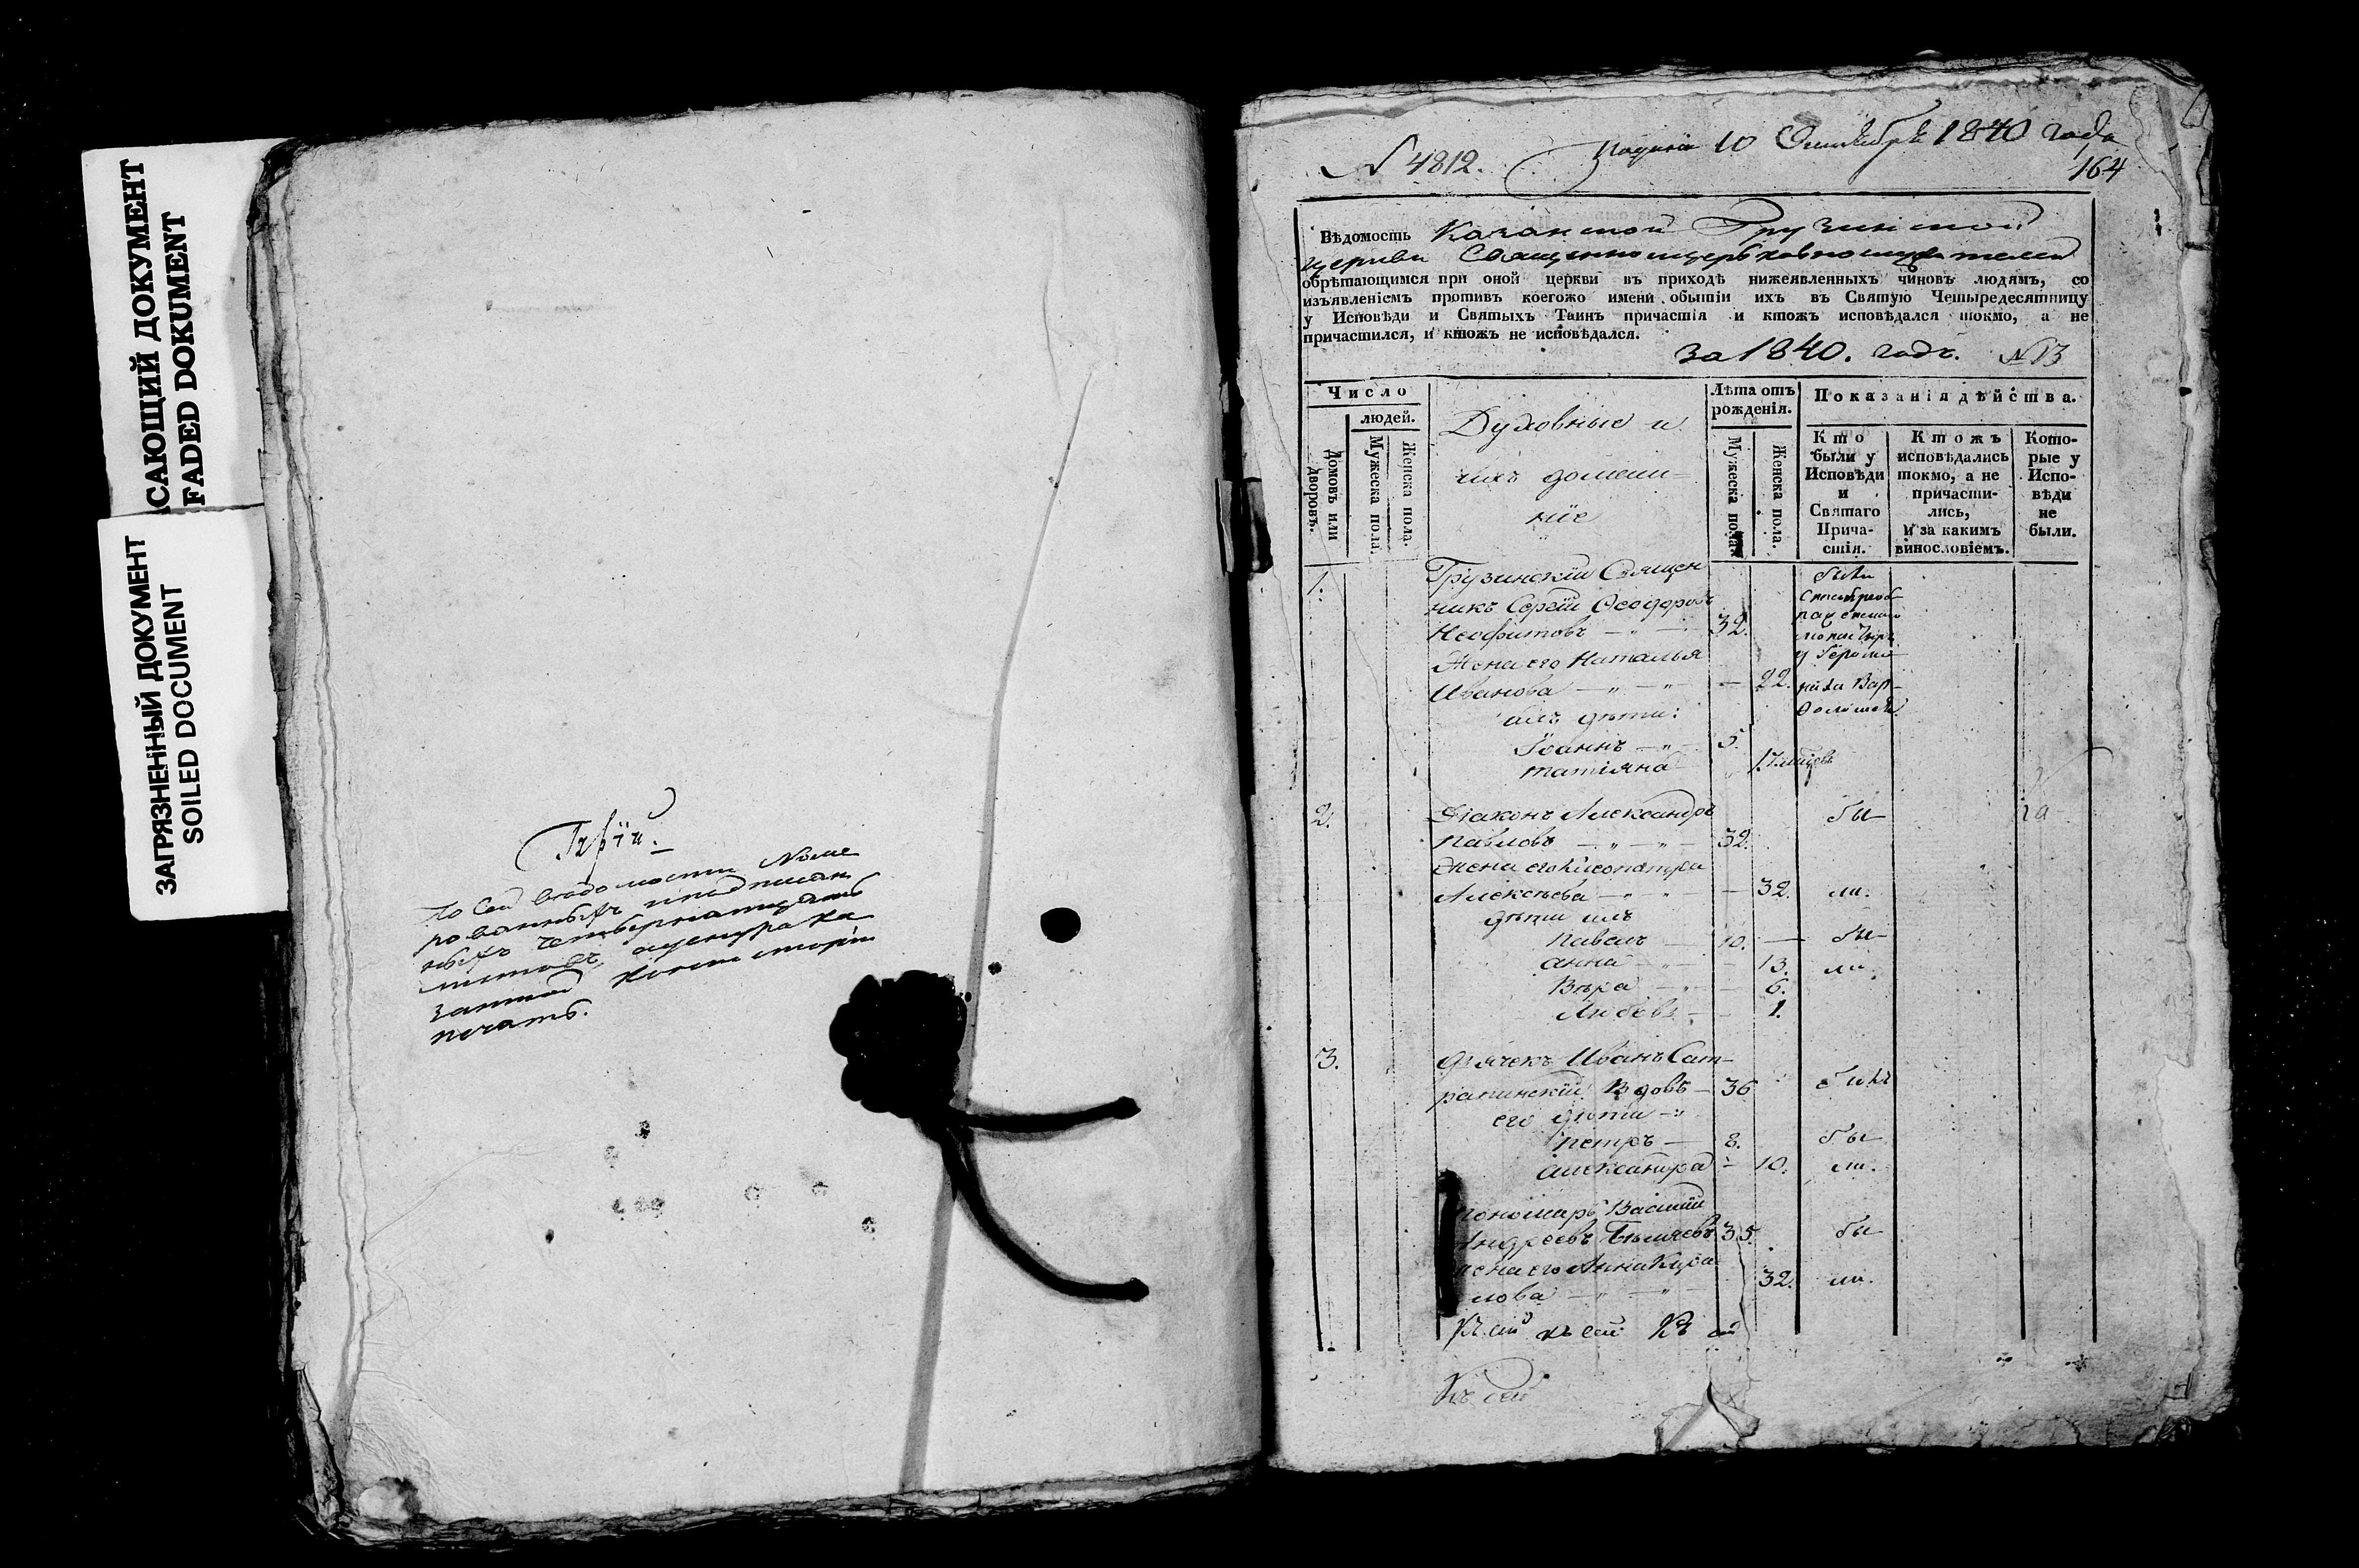 САЮЩИЙ ДОКУМЕНТ
FADED DOKUMENT
ЗАГРЯЗНЕННЫЙ ДОКУМЕНТ
SOILED DOCUMENT
въ сей вѣдомости Номе
рованныхъ и подписан
ныхъ четырнатцать
листовъ,
Казанской Консисторіи
печать.
N 4812.
10 Октября 1840 года
164
Вѣдомость Казанской Грузинской
церкви Священноцерковнослужителей
обрѣтающимся при оной церкви въ приходѣ нижеявленныхъ чиновъ людямъ, со
изъявленіемъ противъ коегожо имени обытіи ихъ въ Святую Четыредесятницу
у Исповѣди и Святыхъ Таинъ причастія и ктожъ исповѣдался токмо, а не
причастился, и ктожъ не исповѣдался.
За 1840. годъ. N 13
Число
людей.
Домовъ или дворовъ.
Мужеска пола.
Женска пола.
Духовные и
ихъ домаш=
ніе
Лѣта отъ
рожденія.
Мужеска пола.
Женска пола.
Показанія дѣйства.
Кто
были у
Исповѣди
и
Святаго
Прича-
стія.
Ктожъ
исповѣдались
токмо, а не
причасти-
лись,
и за какимъ
винословіемъ.
Кото-
рые у
Испо-
вѣди
не
были.
1. Грузинскій Священ
были
никъ Сергій Ѳеодоровъ
Неофитовъ — " — 32.
Жена его Наталья
Иванова — " — " — 22.
ихъ дѣти:
Іоаннъ — " — 5.
Татіяна 17 мѣсяцевъ
2. Діаконъ Александръ бы
Павловъ — " — " — 32.
Жена его Клеопатра
Алексѣева — 32. ли.
дѣти ихъ
Павелъ 10. — бы
Анна — " — 13. ли.
Вѣра — " — 6.
Любовь — 1.
3. Дьячекъ Иванъ Сат-
рапинскій Вдовъ — 36 былъ
его дѣти —:
Петръ — 8. бы
Александра — 10. ли.
Пономарь Василій
Андреевъ Бѣляевъ 35. бы
жена его Анна Кири
лова — " — " — 32. ли.
Къ сей къ сей Къ сей
Къ сей